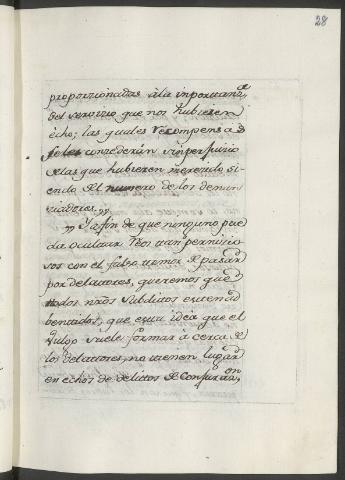 28
proporzionadas à la inportanᶜᵃ
del servizio que nos hubieren
echo; las quales recompensas
se les conzederàn sin perjuizio
de las que hubieren merezido si-
endo del numero de los denun-
ziadores.,,
,, Y a fin de que ninguno pue
da ocultar Reos tan pernizio
sos con el falso temor de pasar
por delatores, queremos que
todos nr̃os subditos esten
que esta idéa que el
vulgo suele formar à cerca de
los delatores, no tienen lugar
en echos de delitos de Conjuraᵒⁿ